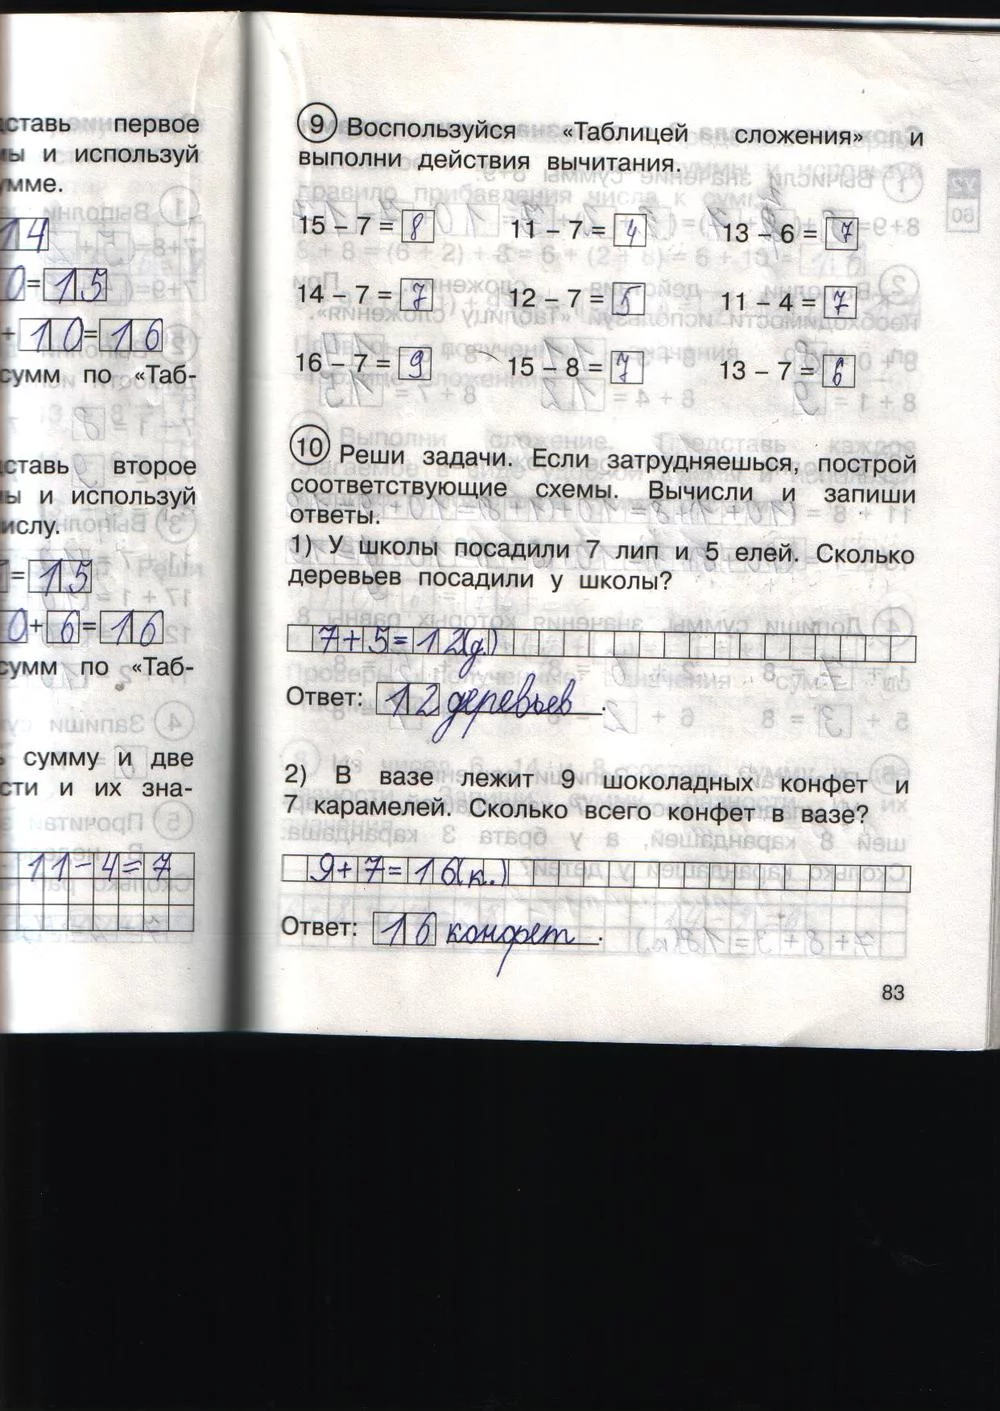 дставь первое
мы и используй
умме.
14
0=15
+10=16
сумм по «Таб-
дставь второе
мы и используй
ислу.
=15
0+6=16
сумм по «Таб-
ь сумму и две
сти и их зна-
11-4=7
9 Воспользуйся «Таблицей сложения» и
выполни действия вычитания.
15 – 7 = 8 11 – 7 = 4 13 – 6 = 7
14 – 7 = 7 12 – 7 = 5 11 – 4 = 7
16 – 7 = 9 15 – 8 = 7 13 – 7 = 6
10 Реши задачи. Если затрудняешься, построй
соответствующие схемы. Вычисли и запиши
ответы.
1) У школы посадили 7 лип и 5 елей. Сколько
деревьев посадили у школы?
7+5=12(д.)
Ответ: 12 деревьев.
2) В вазе лежит 9 шоколадных конфет и
7 карамелей. Сколько всего конфет в вазе?
9+7=16(к.)
Ответ: 16 конфет.
83